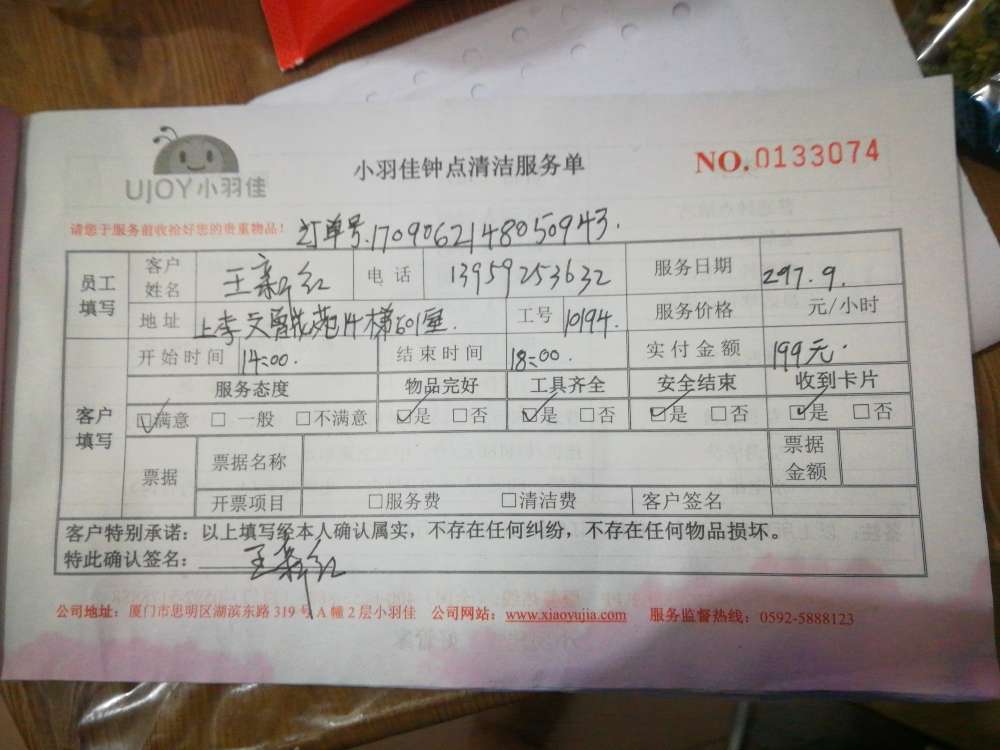 UJOY小羽佳
小羽佳钟点清洁服务单
NO.0133074
请您于服务前收拾好您的贵重物品！
订单号:170906214805094 3.
员工填写 客户姓名 王 红 电话 13959253632 服务日期 297.9.
地址 上李文 花苑14梯601室. 工号 10194. 服务价格 元/小时
客户填写 开始时间 14:00. 结束时间 18:00. 实付金额 199元.
服务态度 物品完好 工具齐全 安全结束 收到卡片
☑满意 □一般 □不满意 ☑是 □否 ☑是 □否 ☑是 □否 ☑是 □否
票据 票据名称 票据金额
开票项目 □服务费 □清洁费 客户签名
客户特别承诺：以上填写经本人确认属实，不存在任何纠纷，不存在任何物品损坏。
特此确认签名： 王 红
公司地址：厦门市思明区湖滨东路 319 号 A 幢 2 层小羽佳 公司网站：www.xiaoyujia.com 服务监督热线：0592-5888123